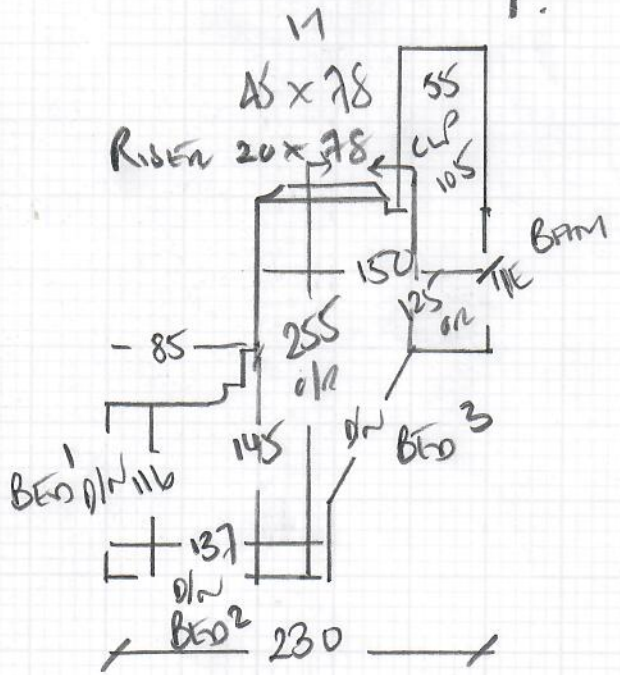 17
45 x 78
RISER 20 x 78
55
CUP
105
BEAM
150
T/E
125
O/R
85
255
O/R
D/N
BED 3
145
BED 1 D/N 116
137
D/N
BED 2
230